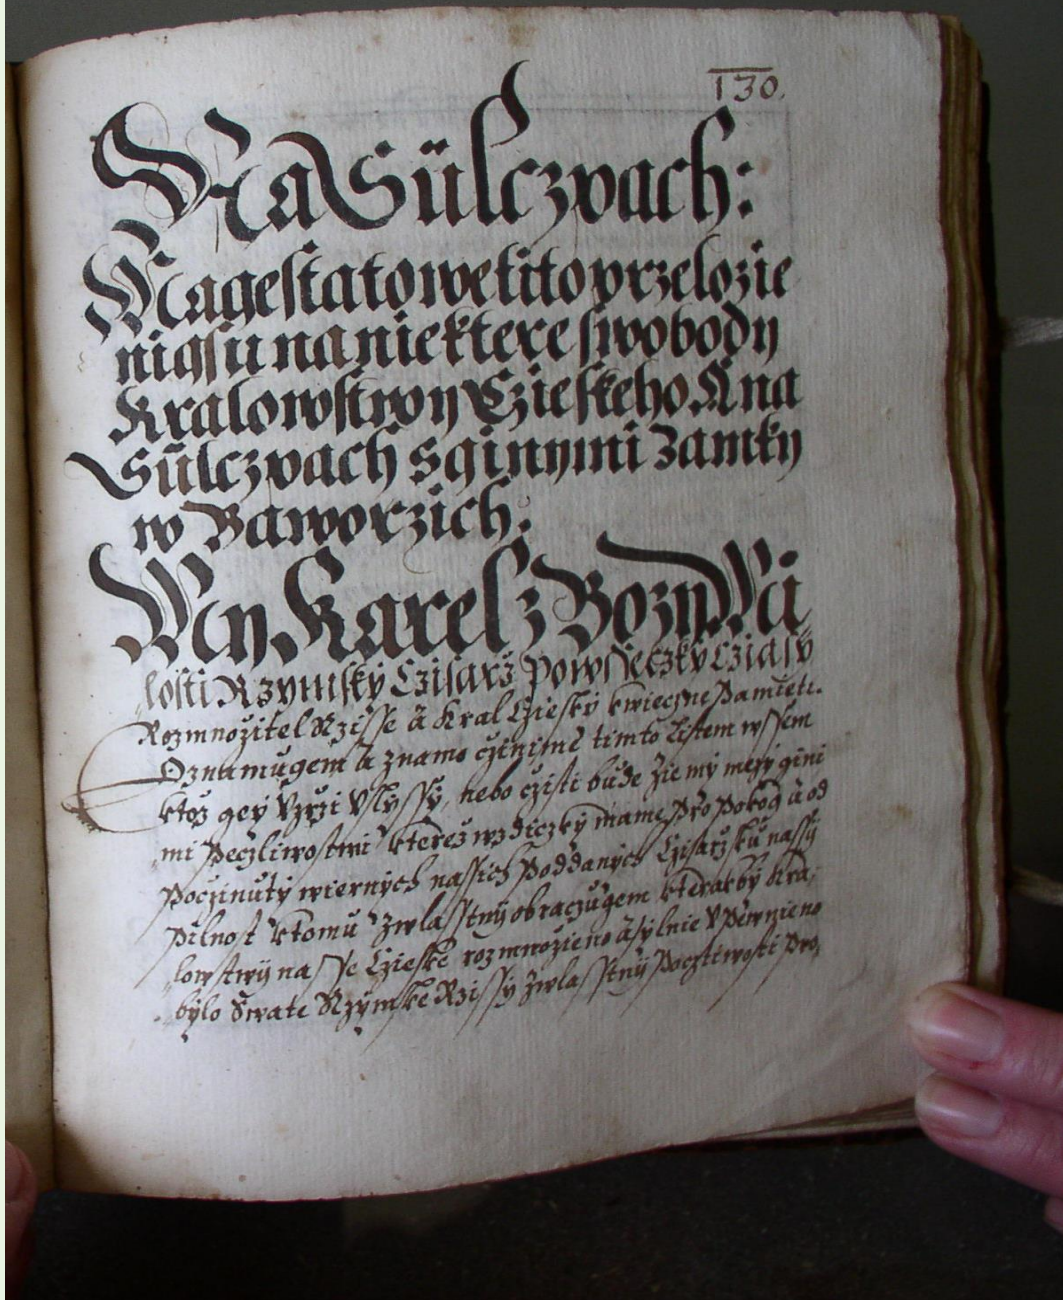 130.
Na Sülczpach:
Magestatowe tito przelozie
nigsu na niektere swobody
Kralowstwy Czieskeho A na
Sülczpach s ginymi Zamky
w Baworzich.
My Karel z Bozy Mi
losti Rzymský Czisarz powsseczký Cziasÿ
Rozmnožitel Rzisse a Kral Czieský kwieczne Pamieti.
Oznamugem a znamo czinime timto Listem wssem
ktoz geý Vzrzi Vslyssý, nebo czisti bude Ziemy mezý gini
mi Peczliwostmi kterez wzdiczký mame Pro Pokog a od
Poczinutý wiernych nassich Poddanych Czisarzsku nassý
Pilnost ktomu zwlasstný obraczugem kterakbý Kra,
lowstwý nasse Czieské rozmnozieno a sýlnie Vpewnieno
býlo Swate Rzýmske Rzissý zwlasstný Pocztiwosti Pro,